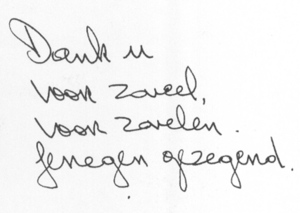 Dank u
voor zoveel,
voor zovelen.
genegen gezegend.